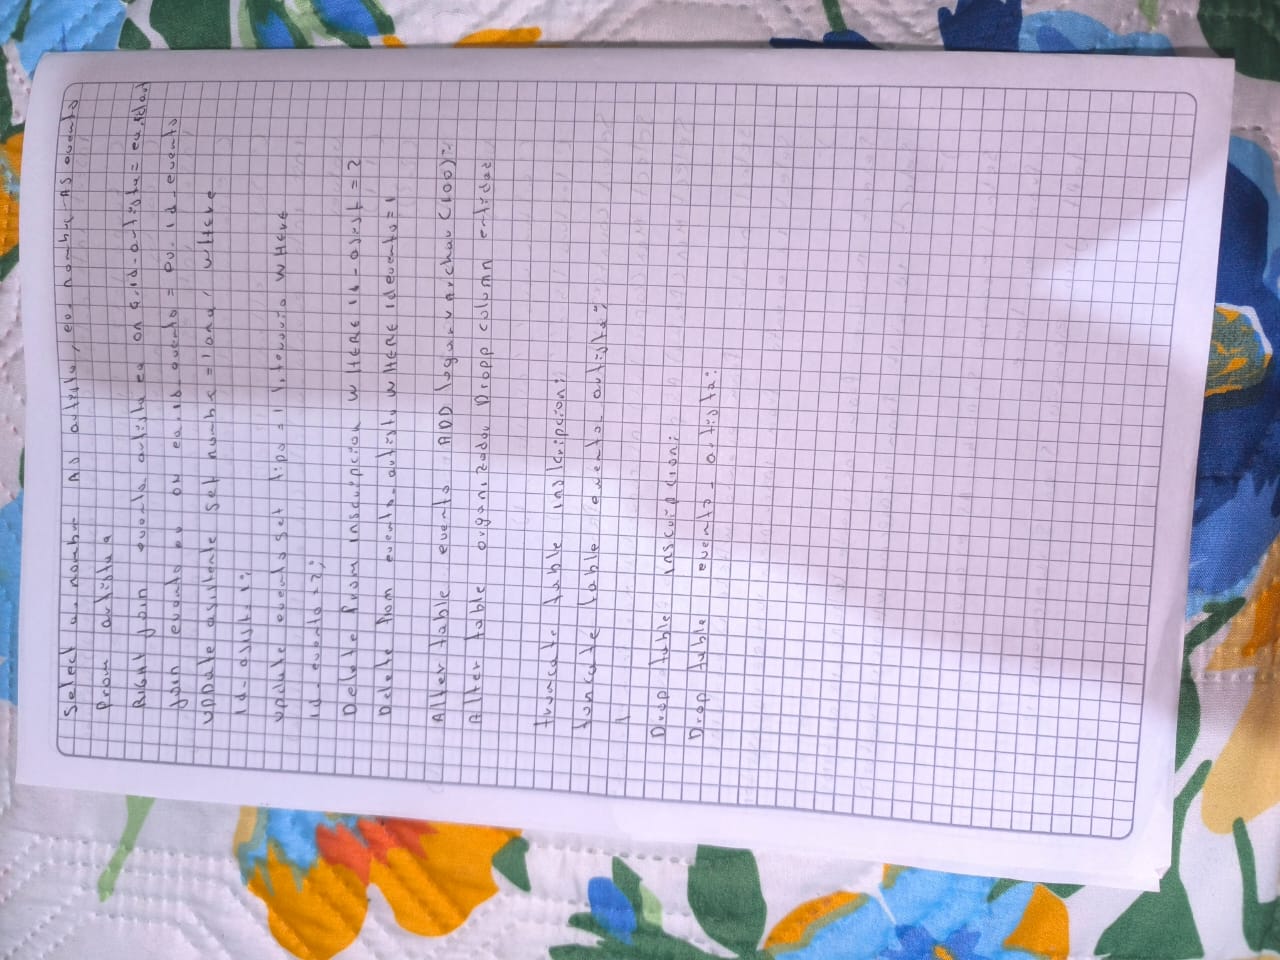 Select a. nombre AS artista, ev. nombre AS evento
From artista a
Right Join evento_artista ea on a.id_artista = ea.idart
Join evento ev on ea.id_evento = ev.id evento
UPDate asistente set nombre = 'ana' WHere
id_asist = 1;
update evento set tipo = 'literario WHere
id_evento = 2;
Delete From inscripcion WHERE id_asist = 2
Delete from evento_artista WHERE idevento = 1
Alter table evento ADD lugar varchar (100);
Alter table organizador Dropp column entidad
truncate table inscripcion;
truncate table evento_artista;
Drop table inscripcion;
Drop table evento_artista;